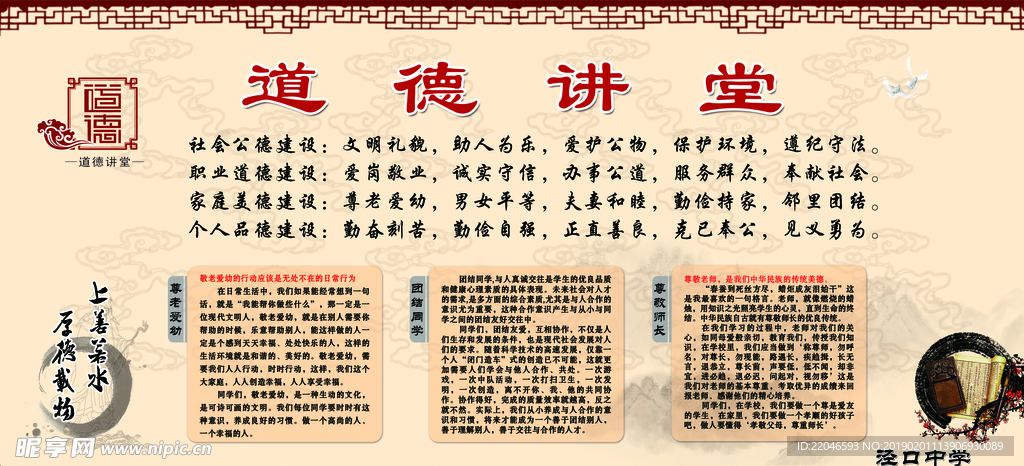 道德讲堂
道德
—道德讲堂—
社会公德建设：文明礼貌，助人为乐，爱护公物，保护环境，遵纪守法。
职业道德建设：爱岗敬业，诚实守信，办事公道，服务群众，奉献社会。
家庭美德建设：尊老爱幼，男女平等，夫妻和睦，勤俭持家，邻里团结。
个人品德建设：勤奋刻苦，勤俭自强，正直善良，克已奉公，见义勇为。
上善若水
厚德载物
尊老爱幼
敬老爱幼的行动应该是无处不在的日常行为
在日常生活中，我们如果能经常想到一句
话，就是“我能帮你做些什么”，那一定是一
位现代文明人，敬老爱幼，就是在别人需要你
帮助的时候，乐意帮助别人，能这样做的人一
定是个感到天天幸福、处处快乐的人，这样的
生活环境就是和谐的、美好的。敬老爱幼，需
要我们人人行动，时时行动，这样，我们这个
大家庭，人人创造幸福，人人享受幸福。
同学们，敬老爱幼，是一种生动的文化，
是可诗可画的文明。我们每位同学要时时有这
种意识，养成良好的习惯。做一个高尚的人、
一个幸福的人。
团结同学
团结同学，与人真诚交往是学生的优良品质
和健康心理素质的具体表现。未来社会对人才
的需求，是多方面的综合素质，尤其是与人合作的
意识尤为重要，这种合作意识产生与从小与同
学之间的团结友好交往中。
同学们，团结友爱，互相协作，不仅是人
们生存和发展的条件，也是现代社会发展对人
们的要求。随着科学技术的高速发展，仅靠一
个人“闭门造车”式的创造已不可能，这就更
加需要人们学会与他人合作、共处。一次游
戏，一次中队活动，一次打扫卫生，一次发
明，一次创造，离不开你、我、他的共同协
作。协作得好，完成的质量效率就越高，反之
就不然。实际上，我们从小养成与人合作的意
识和习惯，将来才能成为一个善于团结别人，
善于理解别人，善于交往与合作的人才。
尊敬师长
尊敬老师，是我们中华民族的传统美德。
“春蚕到死丝方尽，蜡炬成灰泪始干”这
是我最喜欢的一句格言。老师，就像燃烧的蜡
烛，用知识之光照亮学生的心灵，直到生命的终
结。中华民族自古就有尊敬师长的优良传统。
在我们学习的过程中，老师对我们的关
心，如同母爱般亲切，教育我们，传授我们知
识，在学校里，我们应当做到‘称尊师，勿呼
名，对尊长，勿现能，路遇长，疾趋揖，长无
言，退恭立，尊长前，声要低，低不闻，却非
宜，进必趋，退必迟，问起对，视勿移’这是
我们对老师的基本尊重，考取优异的成绩来回
报老师，感谢他们的精心培养。
同学们，在学校，我们要做一个尊是爱友
的学生，在家里，我们要做一个孝顺的好孩子
吧，做人要懂得‘孝敬父母，尊重师长’。
泾口中学
昵享网 www.nipic.cn
ID:22046593 NO:20190201113906930089